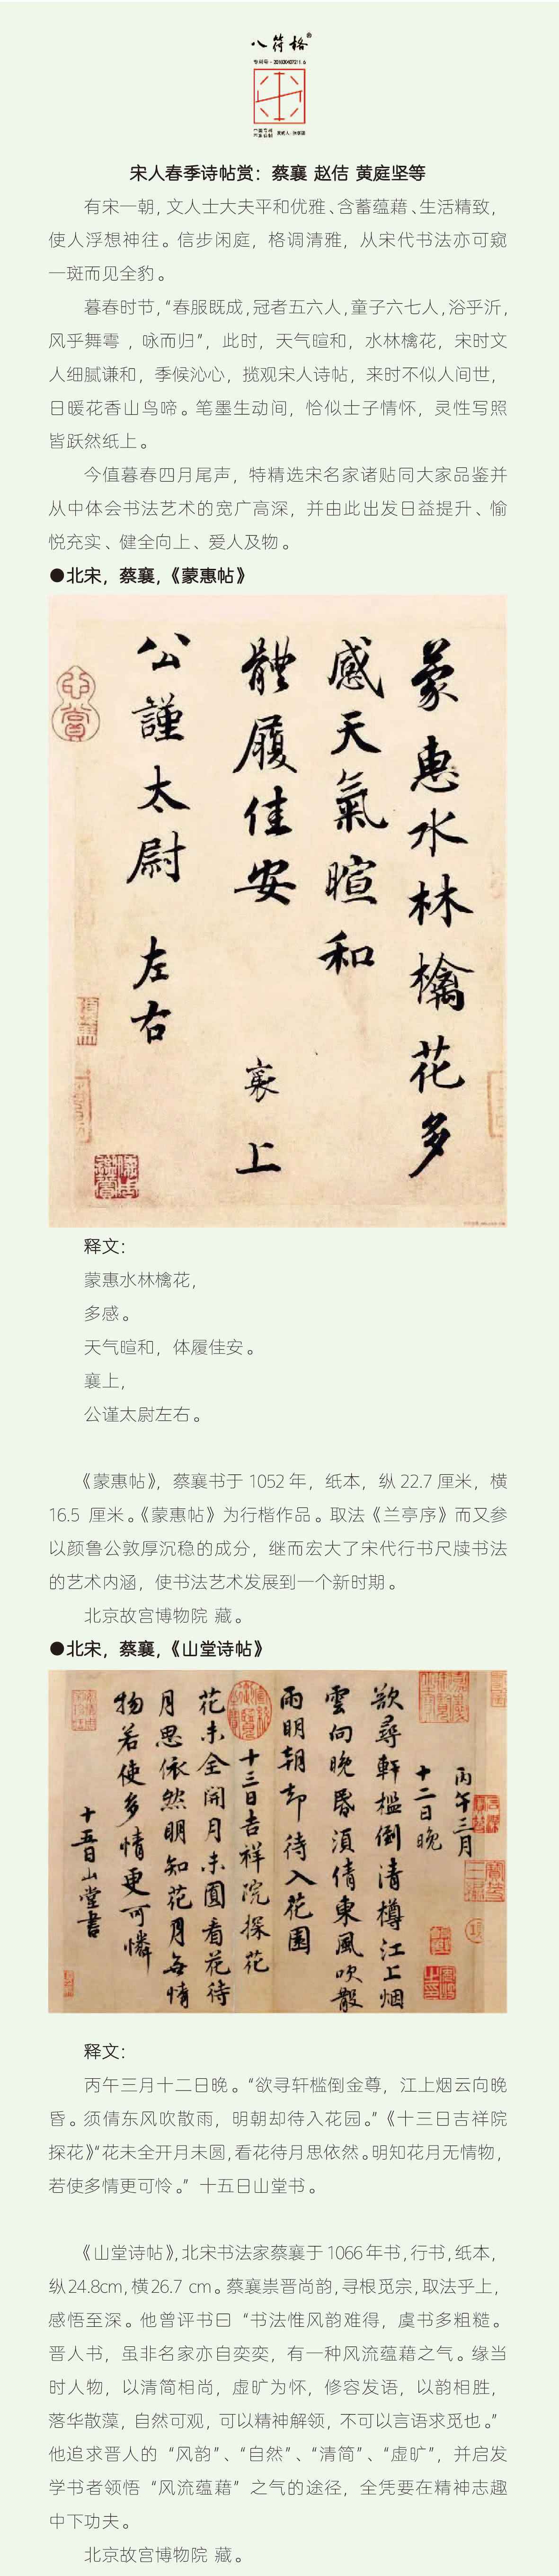 八符格®
专利号：201830407211.6
宋人春季诗帖赏：蔡襄 赵佶 黄庭坚等
有宋一朝，文人士大夫平和优雅、含蓄蕴藉、生活精致，
使人浮想神往。信步闲庭，格调清雅，从宋代书法亦可窥
一斑而见全豹。
暮春时节，“春服既成，冠者五六人，童子六七人，浴乎沂，
风乎舞雩 ，咏而归”，此时，天气暄和，水林檎花，宋时文
人细腻谦和，季候沁心，揽观宋人诗帖，来时不似人间世，
日暖花香山鸟啼。笔墨生动间，恰似士子情怀，灵性写照
皆跃然纸上。
今值暮春四月尾声，特精选宋名家诸贴同大家品鉴并
从中体会书法艺术的宽广高深，并由此出发日益提升、愉
悦充实、健全向上、爱人及物。
●北宋，蔡襄，《蒙惠帖》
蒙惠水林檎花多
感天氣暄和
體履佳安 襄上
公謹太尉 左右
释文：
蒙惠水林檎花，
多感。
天气暄和，体履佳安。
襄上，
公谨太尉左右。
《蒙惠帖》，蔡襄书于 1052 年，纸本，纵 22.7 厘米，横
16.5 厘米。《蒙惠帖》为行楷作品。取法《兰亭序》而又参
以颜鲁公敦厚沉稳的成分，继而宏大了宋代行书尺牍书法
的艺术内涵，使书法艺术发展到一个新时期。
北京故宫博物院 藏。
●北宋，蔡襄，《山堂诗帖》
丙午三月
十二日晚
欲尋軒檻倒清樽江上烟
雲向晚昏須倩東風吹散
雨明朝却待入花園
十三日吉祥院探花
花未全開月未圓看花待
月思依然明知花月無情
物若使多情更可憐
十五日山堂書
释文：
丙午三月十二日晚。“欲寻轩槛倒金尊，江上烟云向晚
昏。须倩东风吹散雨，明朝却待入花园。”《十三日吉祥院
探花》“花未全开月未圆，看花待月思依然。明知花月无情物，
若使多情更可怜。” 十五日山堂书。
《山堂诗帖》，北宋书法家蔡襄于 1066 年书，行书，纸本，
纵24.8cm，横26.7 cm。蔡襄崇晋尚韵，寻根觅宗，取法乎上，
感悟至深。他曾评书曰“书法惟风韵难得，虞书多粗糙。
晋人书，虽非名家亦自奕奕，有一种风流蕴藉之气。缘当
时人物，以清简相尚，虚旷为怀，修容发语，以韵相胜，
落华散藻，自然可观，可以精神解领，不可以言语求觅也。”
他追求晋人的“风韵”、“自然”、“清简”、“虚旷”，并启发
学书者领悟“风流蕴藉”之气的途径，全凭要在精神志趣
中下功夫。
北京故宫博物院 藏。